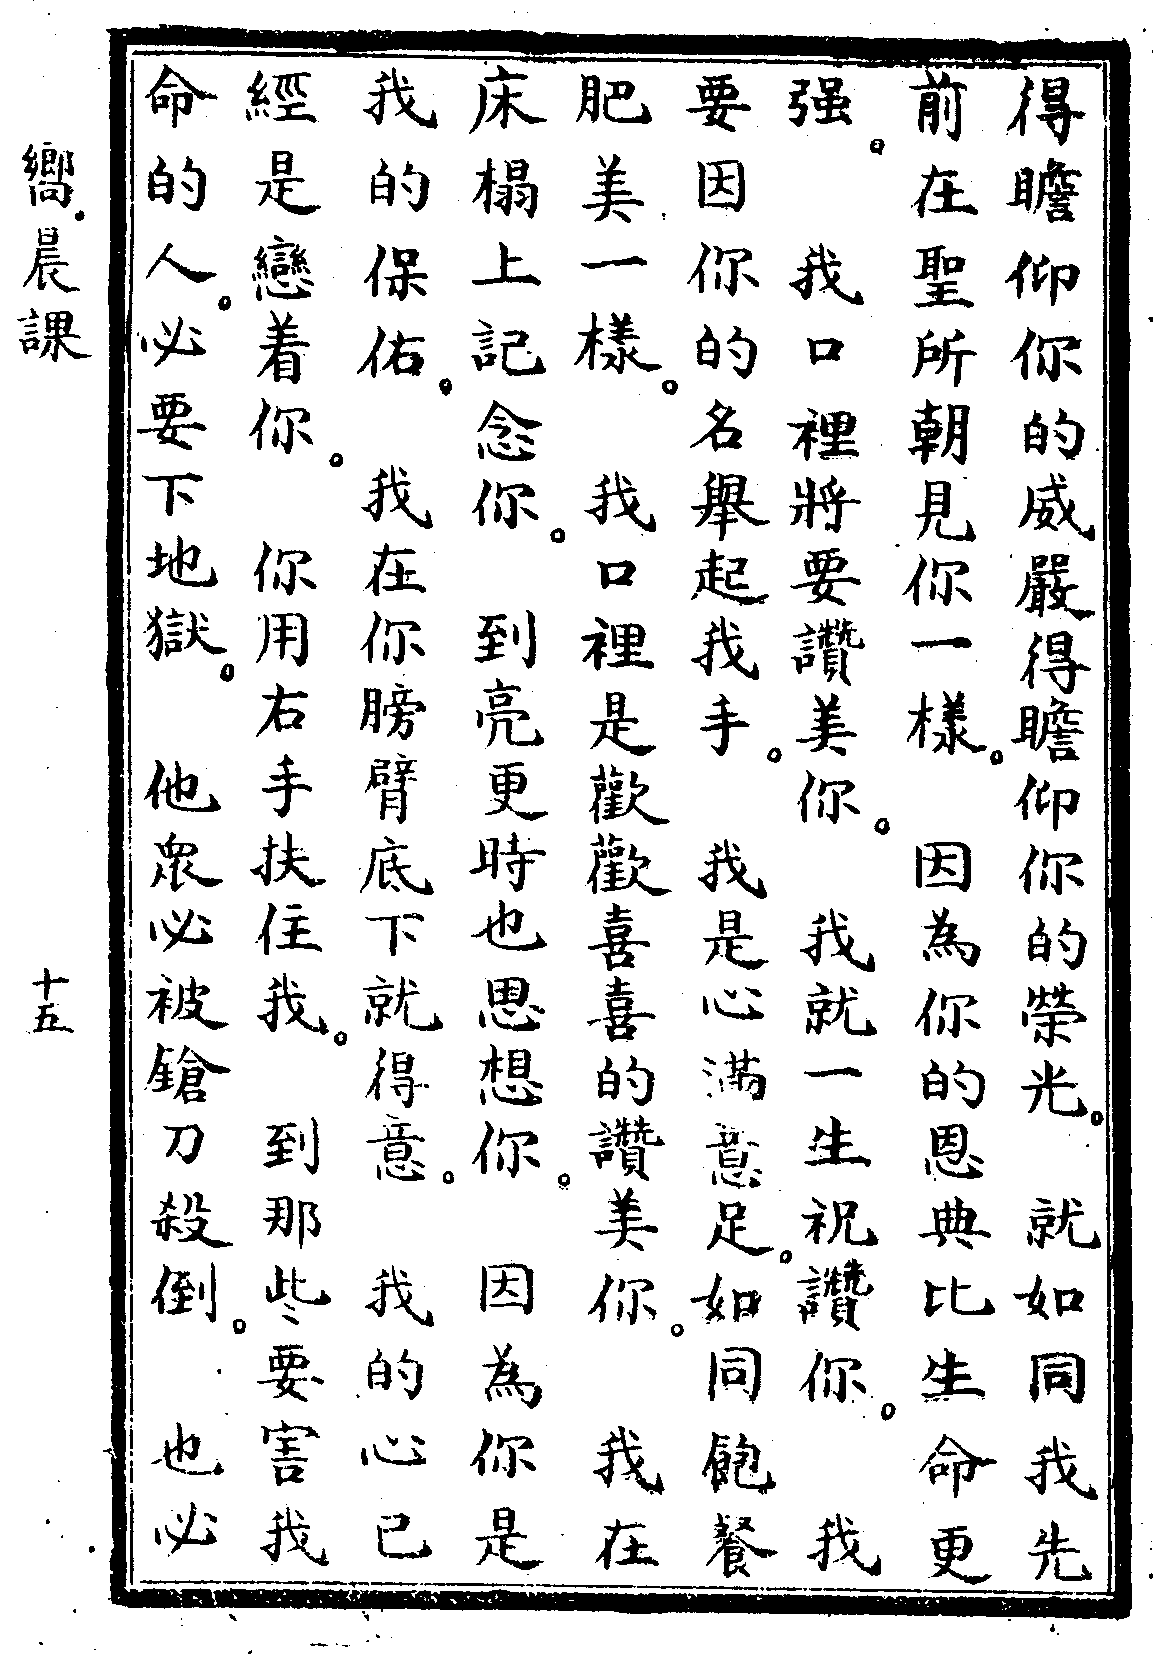 得瞻仰你的威嚴得瞻仰你的榮光。　就如同我先
前在聖所朝見你一樣。　因為你的恩典比生命更
强。　我口裡將要讚美你。　我就一生祝讚你。　我
要因你的名舉起我手。　我是心滿意足。如同飽餐
肥美一樣。　我口裡是歡歡喜喜的讚美你。　我在
床榻上記念你。　到亮更時也思想你。　因為你是
我的保佑。　我在你膀臂底下就得意。　我的心已
經是戀着你。　你用右手扶住我。　到那些要害我
命的人。必要下地獄。　他衆必被鎗刀殺倒。　也必
嚮。晨課
十五